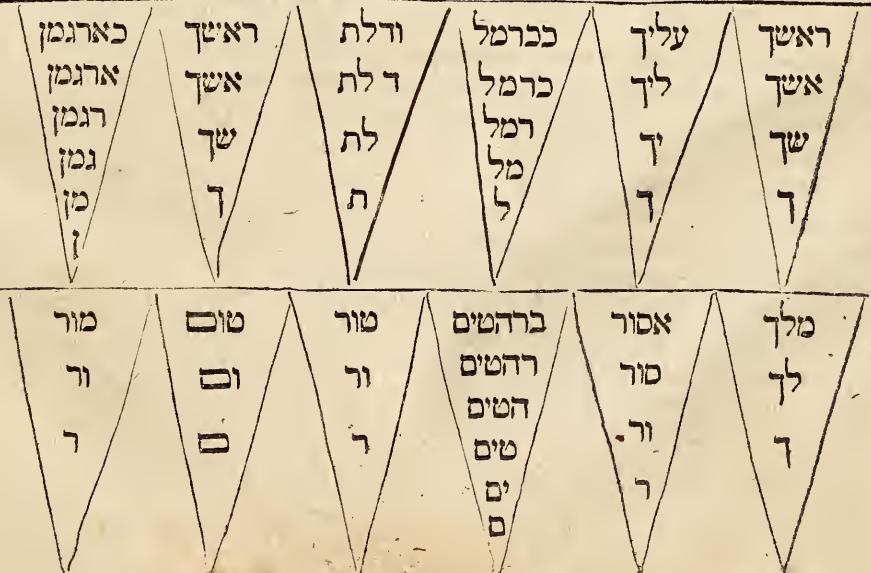 ראשך
אשך
שך
ך
עליך
ליך
יך
ך
ככרמל
כרמל
רמל
מל
ל
ודלת
ד לת
לת
ת
ראשך
אשך
שך
ך
כארגמן
ארגמן
רגמן
גמן
מן
ן
מלך
לך
ך
אסור
סור
ור
ר
ברהטים
רהטים
הטים
טים
ים
ם
טור
ור
ר
טום
ום
ם
מור
ור
ר